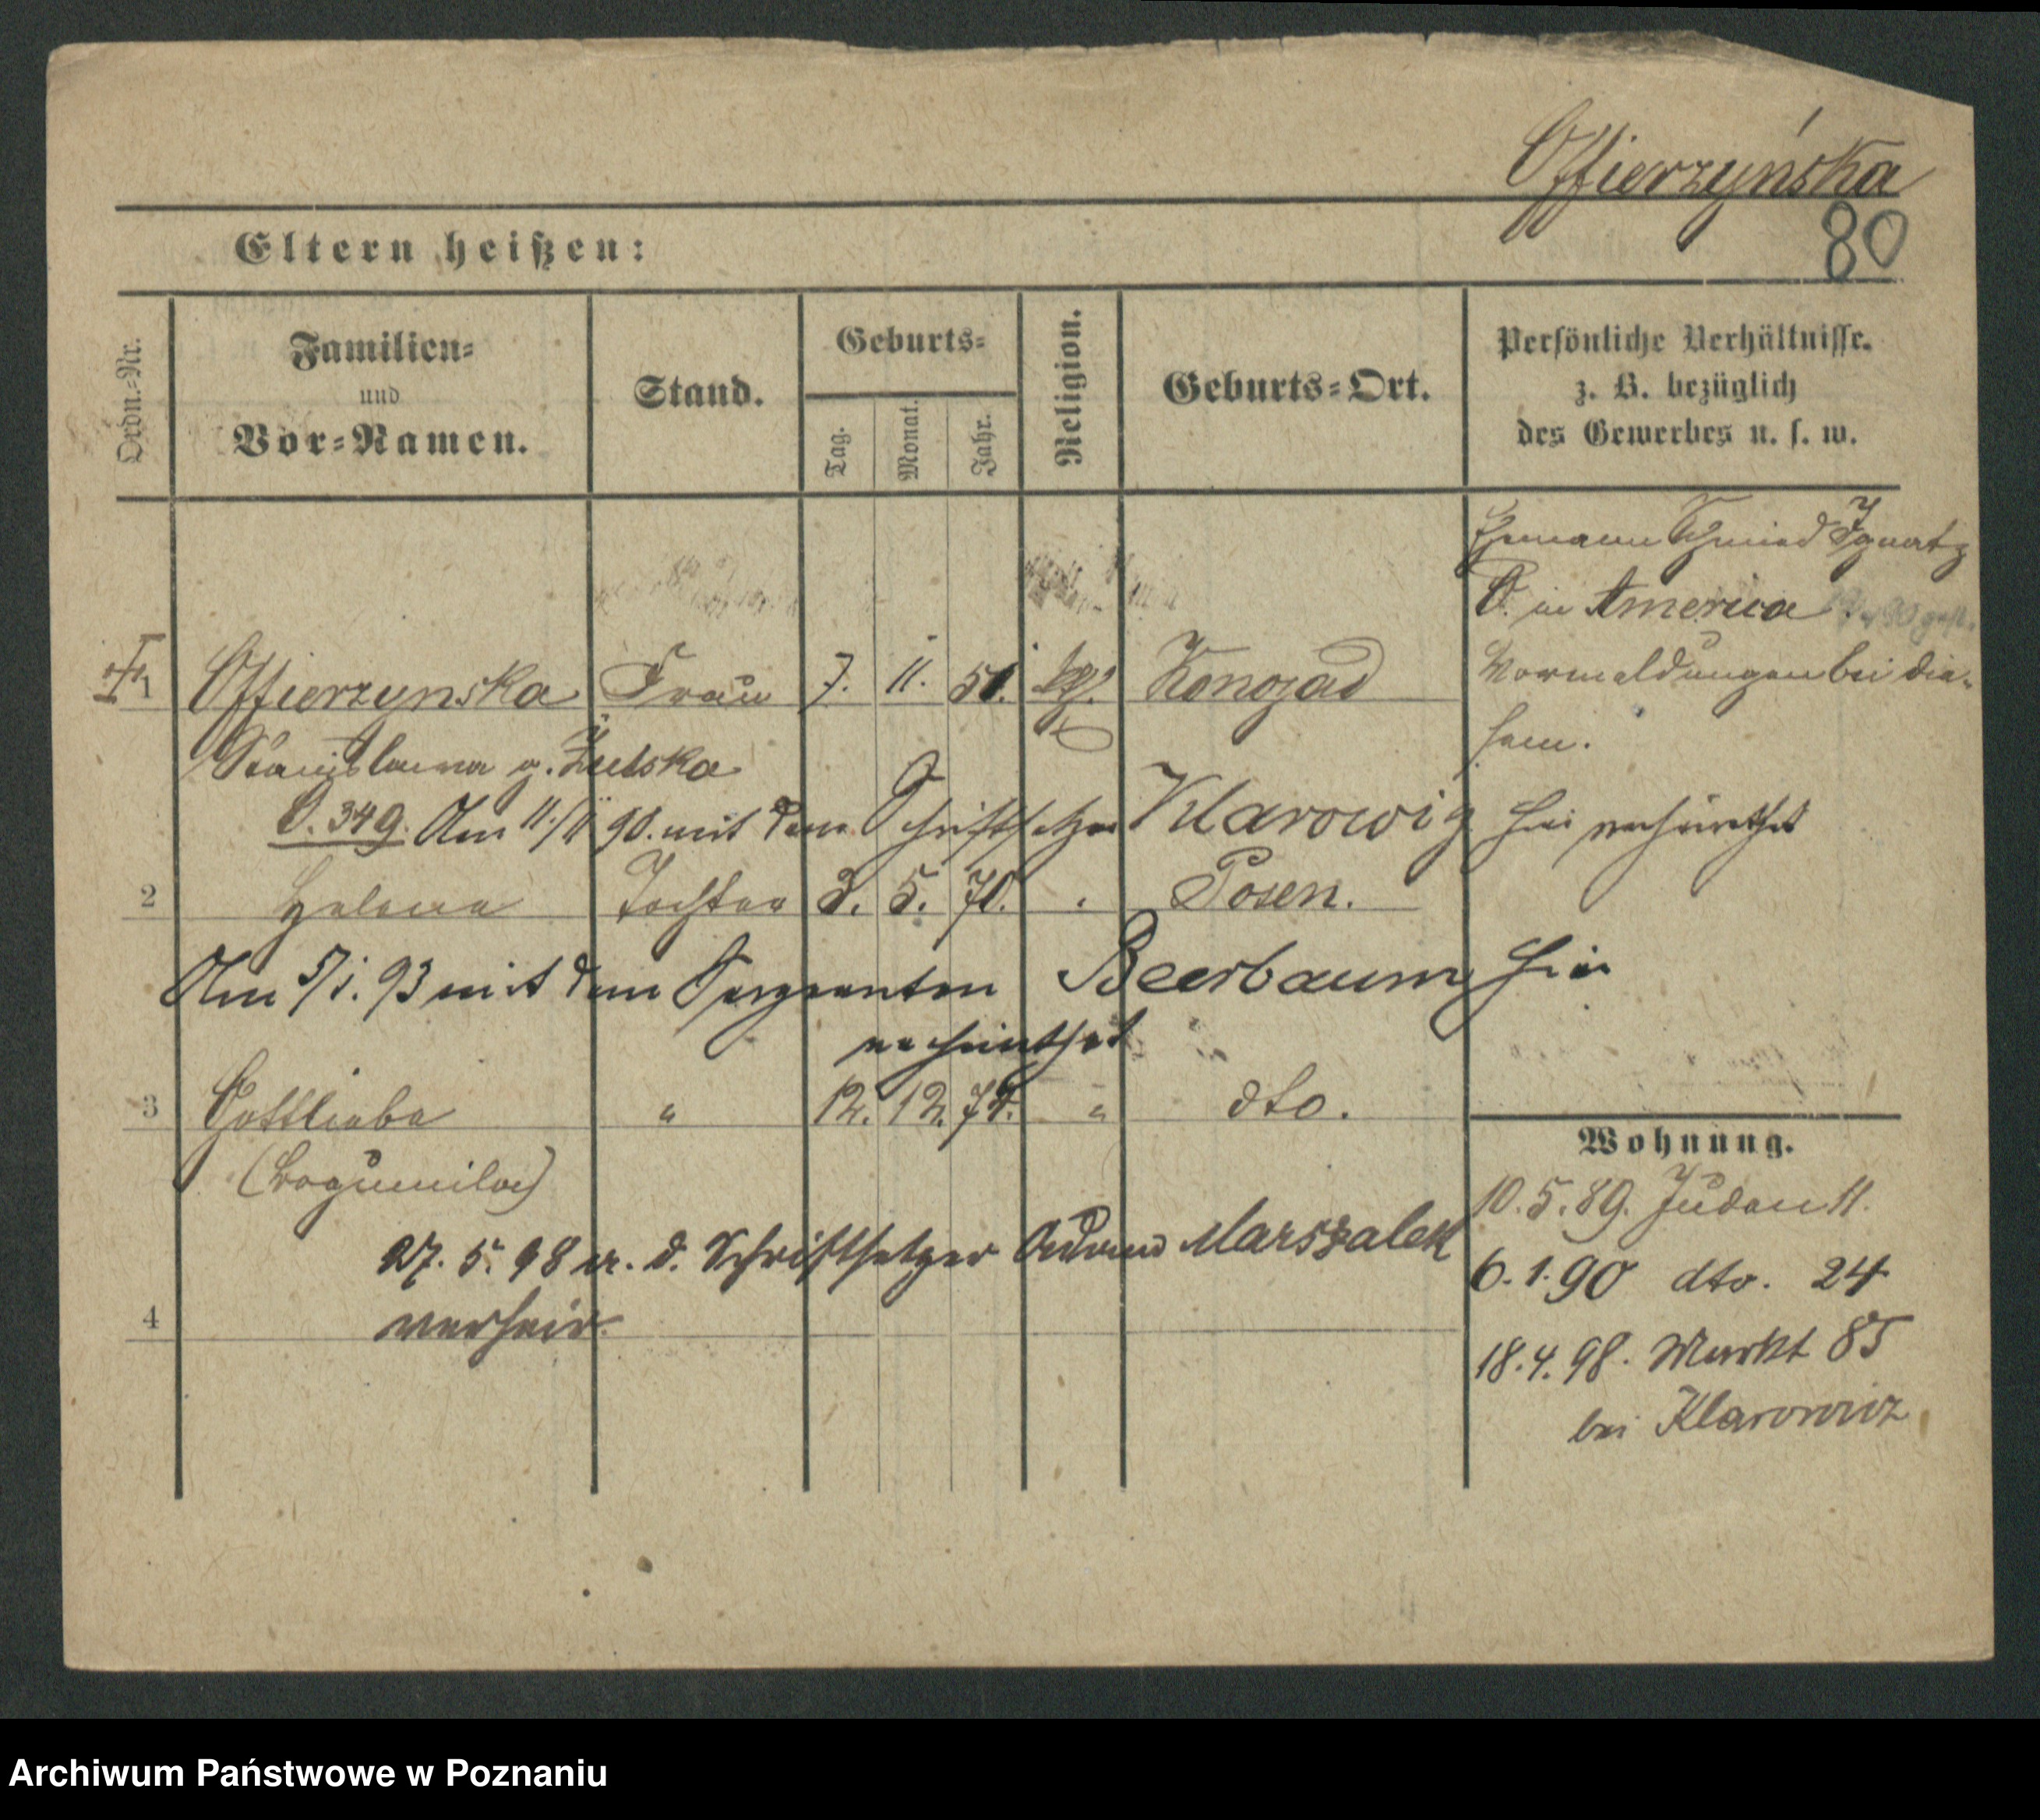 Offierzyńska
80
Eltern heißen:
Ordn.-Nr.
Familien-
und
Vor-Namen.
Stand.
Geburts-
Tag.
Monat.
Jahr.
Religion.
Geburts-Ort.
Persönliche Verhältnisse.
z. B. bezüglich
des Gewerbes u. s. w.
Ehemann Schmied Ignatz
O. in America
1 Offierzynska Frau 7. 11. 51. kg. Konojad
Vormeldungen bei die-
sem.
Stanislawa g. Żulska
O. 349. Am 11./11 90. mit dem Schriftsetzer Klarowicz hier verheirathet
2 Helena Tochter 3. 5. 70. " Posen.
Am 5/1. 93 mit dem Sergeanten Beerbaum hier
verheirathet
3 Gottlieba " 12. 12. 74. " dto.
(Bogumila)
27. 5. 98 m. d. Schriftsetzer Marszalek
4 verheir.
Wohnung.
10. 5. 89. Juden 11.
6. 1. 90 dto. 24
18. 4. 98. Markt 85
bei Klarowicz
Archiwum Państwowe w Poznaniu